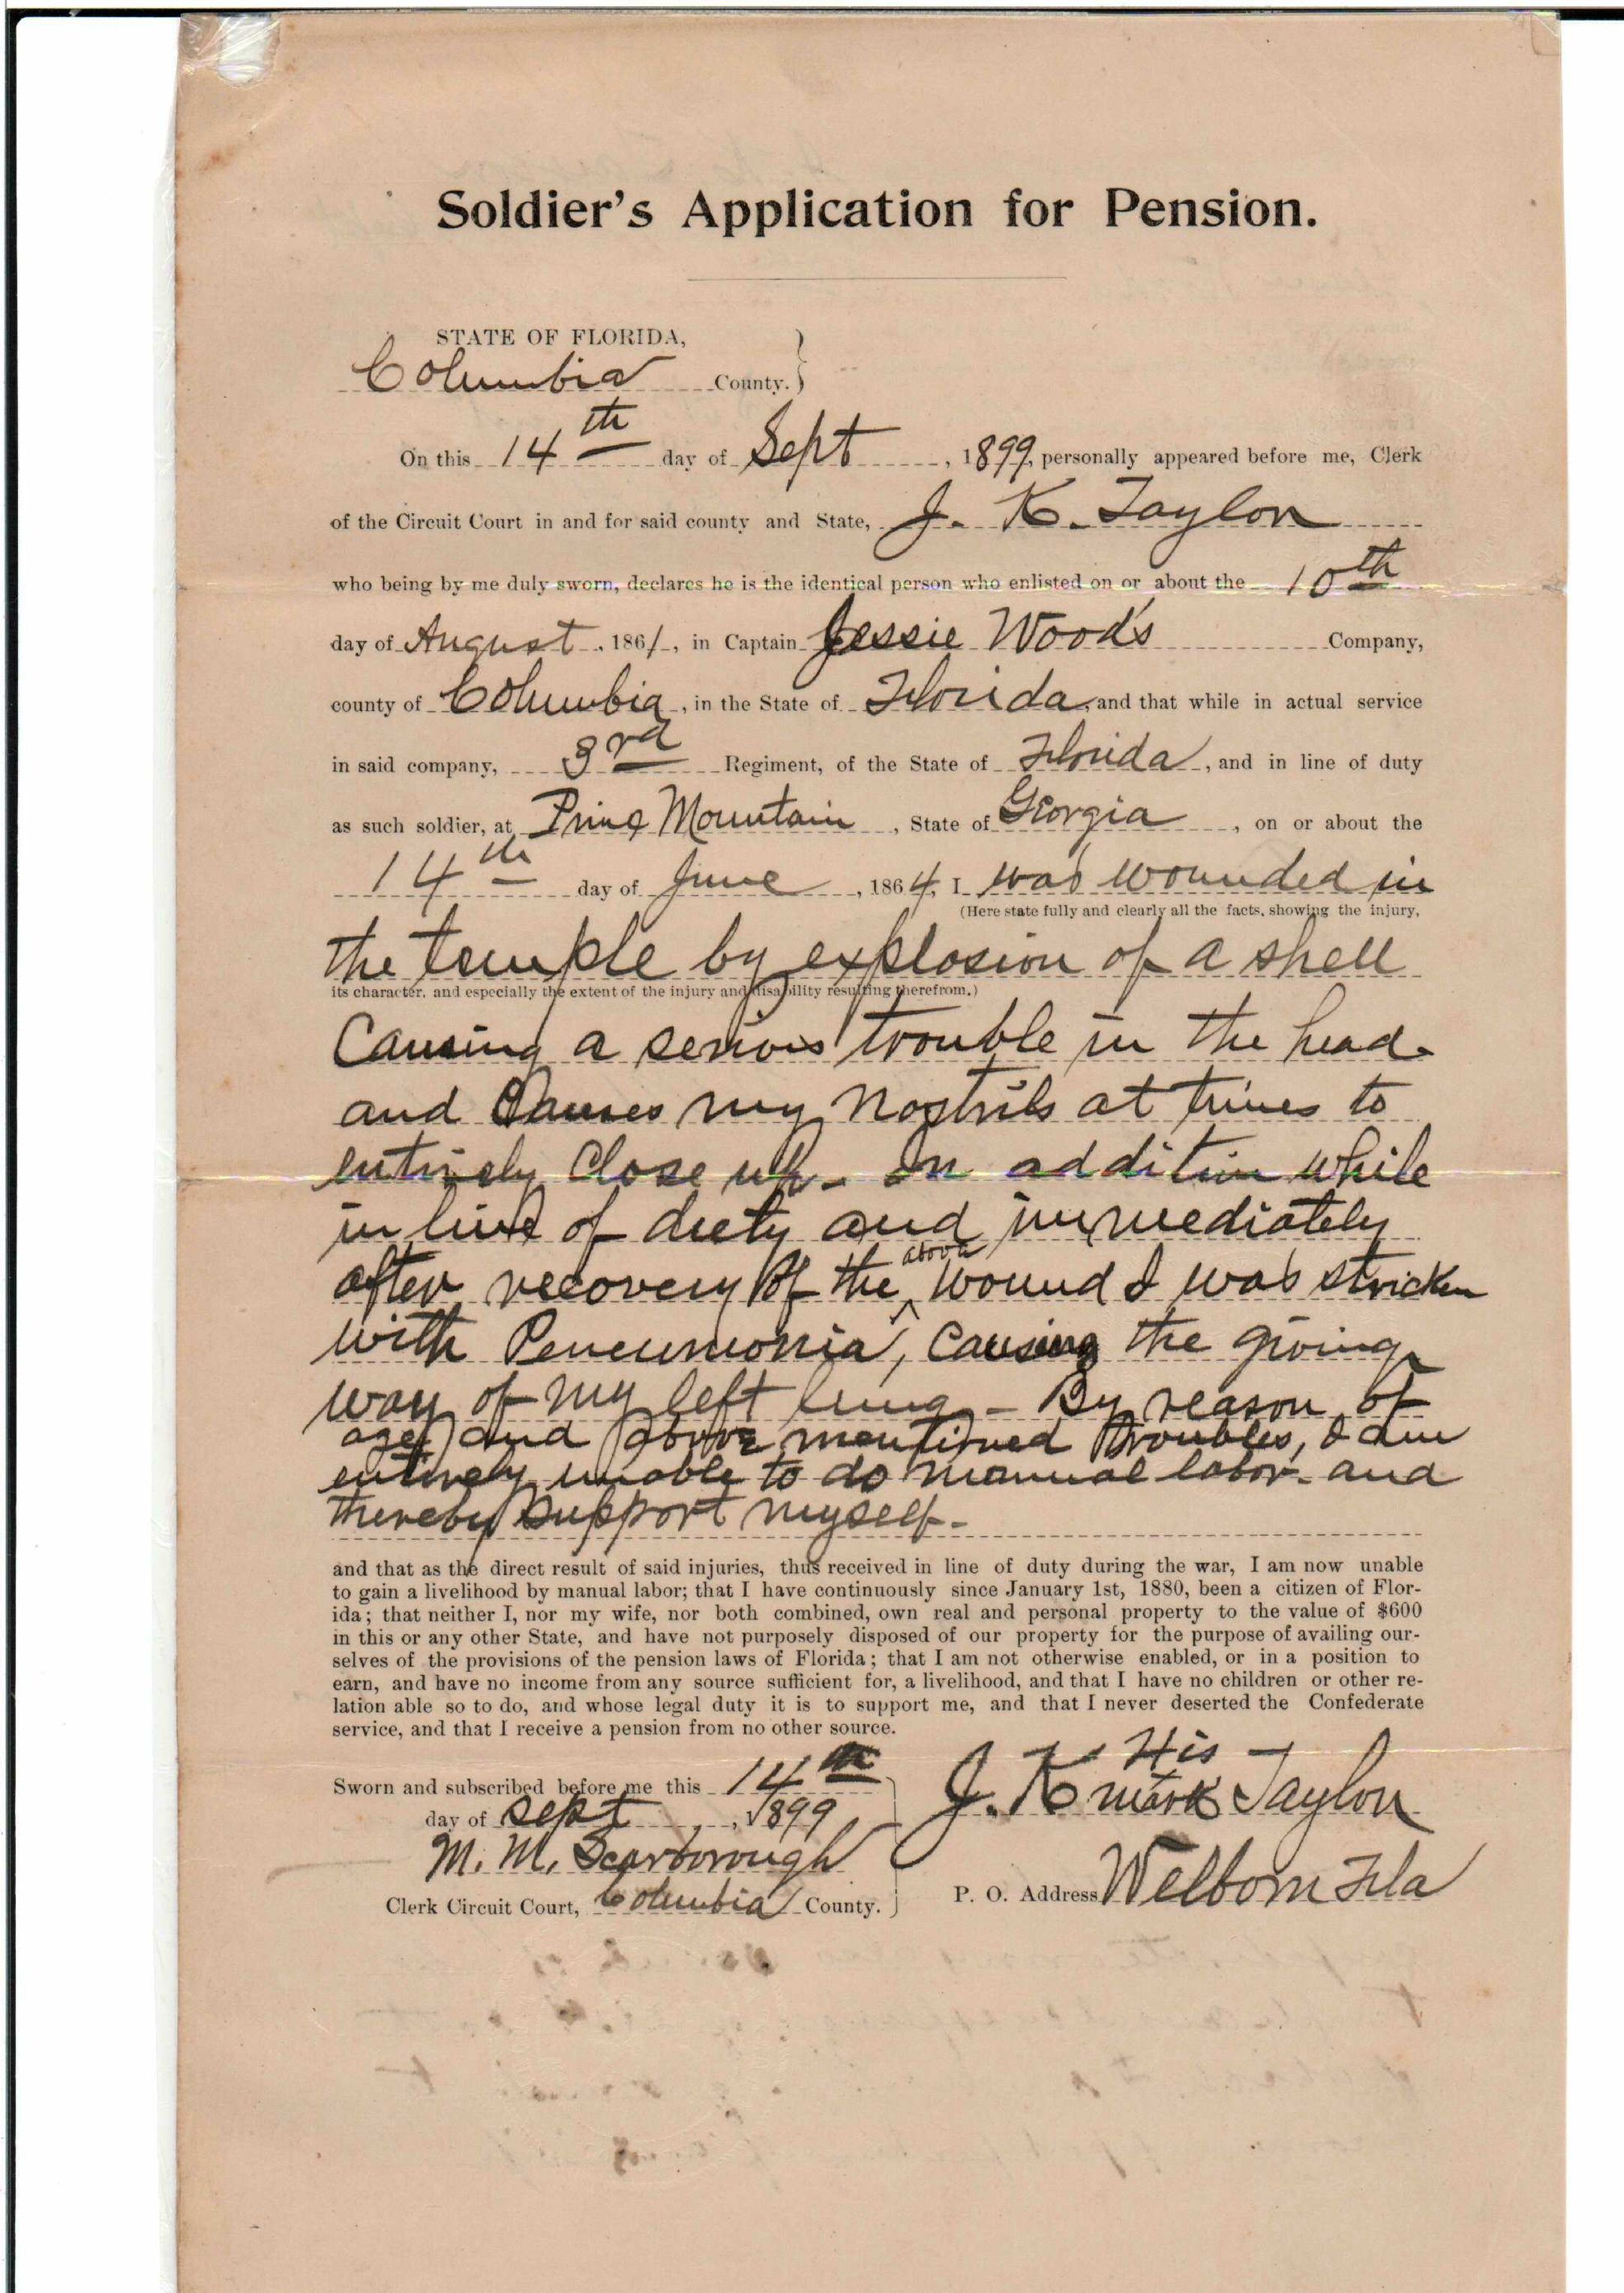 Soldier's Application for Pension.
STATE OF FLORIDA,
Columbia County.
On this 14th day of Sept, 1899, personally appeared before me, Clerk
of the Circuit Court in and for said county and State, J. K. Taylor
who being by me duly sworn, declares he is the identical person who enlisted on or about the 10th
day of August, 1861, in Captain Jessie Wood's Company,
county of Columbia, in the State of Florida, and that while in actual service
in said company, 3rd Regiment, of the State of Florida, and in line of duty
as such soldier, at Pine Mountain, State of Georgia, on or about the
14th day of June, 1864, I was wounded in
(Here state fully and clearly all the facts, showing the injury,
the temple by explosion of a shell
its character, and especially the extent of the injury and disability resulting therefrom.)
Causing a serious trouble in the head
and Causes my nostrils at times to
entirely close up - In addition while
in line of duty and immediately
after recovery of the above wound I was stricken
with Peneumonia, causing the giving
way of my left lung - By reason of
age and above mentioned troubles, I am
entirely unable to do manual labor and
thereby support myself -
and that as the direct result of said injuries, thus received in line of duty during the war, I am now unable
to gain a livelihood by manual labor; that I have continuously since January 1st, 1880, been a citizen of Flor-
ida; that neither I, nor my wife, nor both combined, own real and personal property to the value of $600
in this or any other State, and have not purposely disposed of our property for the purpose of availing our-
selves of the provisions of the pension laws of Florida; that I am not otherwise enabled, or in a position to
earn, and have no income from any source sufficient for, a livelihood, and that I have no children or other re-
lation able so to do, and whose legal duty it is to support me, and that I never deserted the Confederate
service, and that I receive a pension from no other source.
Sworn and subscribed before me this 14th
day of Sept, 1899
M. M. Scarborough
Clerk Circuit Court, Columbia County.
His
J. K mark Taylor
P. O. Address Welborn Fla